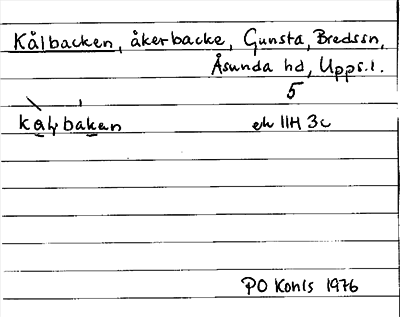 Kålbacken, åkerbacke, Gunsta, Bredssn,
Åsunda hd, Upps.l.
5
ek 11H 3c
PO Konls 1976